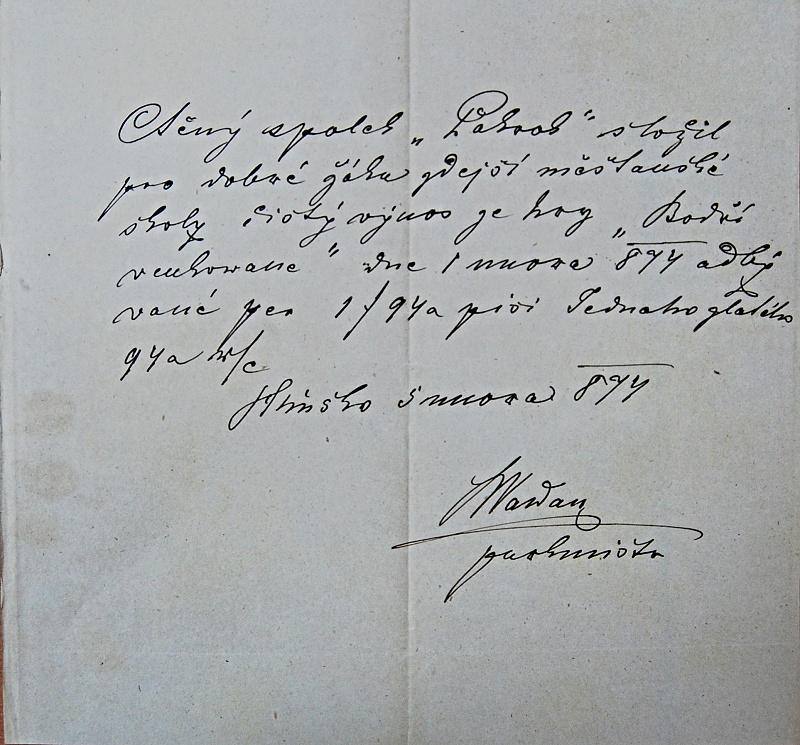 Ctěný spolek „Pokrok“ složil
pro dobré žáku zdejší měštanské
školy čistý výnos ze hry „Bodří
venkované“ dne 1 unora 877 odbý
vané per 1/94a píši Jednoho zlatého
94a r/c
Hlinsko 5 unora 877
Wawan
purkmistr